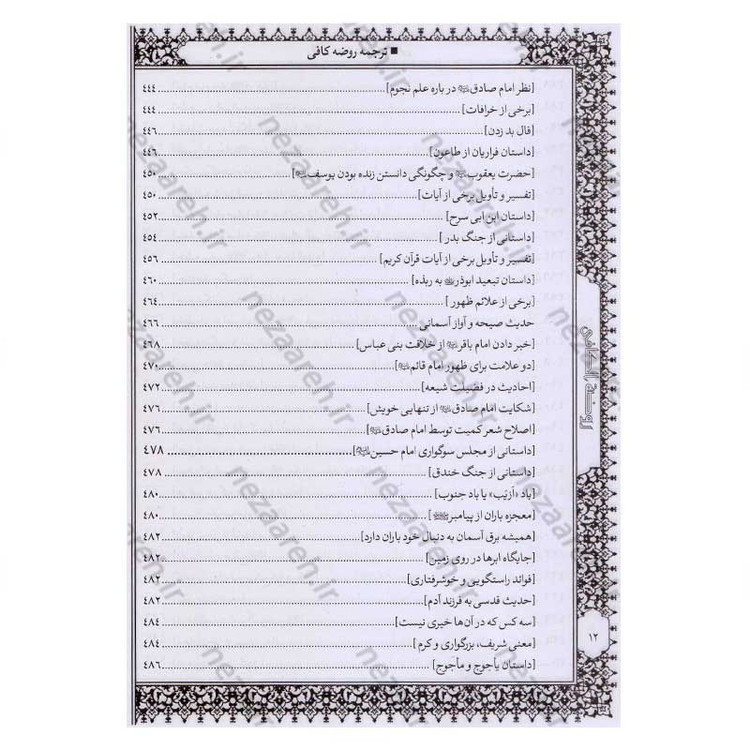 ■ ترجمه روضه کافی
[نظر امام صادق در باره علم نجوم] ۴۴۴
[برخی از خرافات] ۴۴۴
[فال بد زدن] ۴۴۶
[داستان فراریان از طاعون] ۴۴۶
[حضرت یعقوب و چگونگی دانستن زنده بودن یوسف] ۴۵۰
[تفسیر و تأویل برخی از آیات] ۴۵۰
[داستان ابن ابی سرح] ۴۵۲
[داستانی از جنگ بدر] ۴۵۴
[تفسیر و تأویل برخی از آیات قرآن کریم] ۴۵۶
[داستان تبعید ابوذر به ربذه] ۴۶۰
[برخی از علائم ظهور] ۴۶۴
حدیث صیحه و آواز آسمانی ۴۶۶
[خبر دادن امام باقر از خلافت بنی عباس] ۴۶۸
[دو علامت برای ظهور امام قائم] ۴۷۰
[احادیث در فضیلت شیعه] ۴۷۲
[شکایت امام صادق از تنهایی خویش] ۴۷۶
[اصلاح شعر کمیت توسط امام صادق] ۴۷۶
[داستانی از مجلس سوگواری امام حسین] ۴۷۸
[داستانی از جنگ خندق] ۴۷۸
[باد «اَزیَب» یا باد جنوب] ۴۸۰
[معجزه باران از پیامبر] ۴۸۰
[همیشه برق آسمان به دنبال خود باران دارد] ۴۸۲
[جایگاه ابرها در روی زمین] ۴۸۲
[فوائد راستگویی و خوشرفتاری] ۴۸۲
[حدیث قدسی به فرزند آدم] ۴۸۲
[سه کس که در آن‌ها خیری نیست] ۴۸۴
[معنی شریف، بزرگواری و کرم] ۴۸۴
[داستان یأجوج و مأجوج] ۴۸۶
روضة الكافي
۱۲
nezaareh.ir